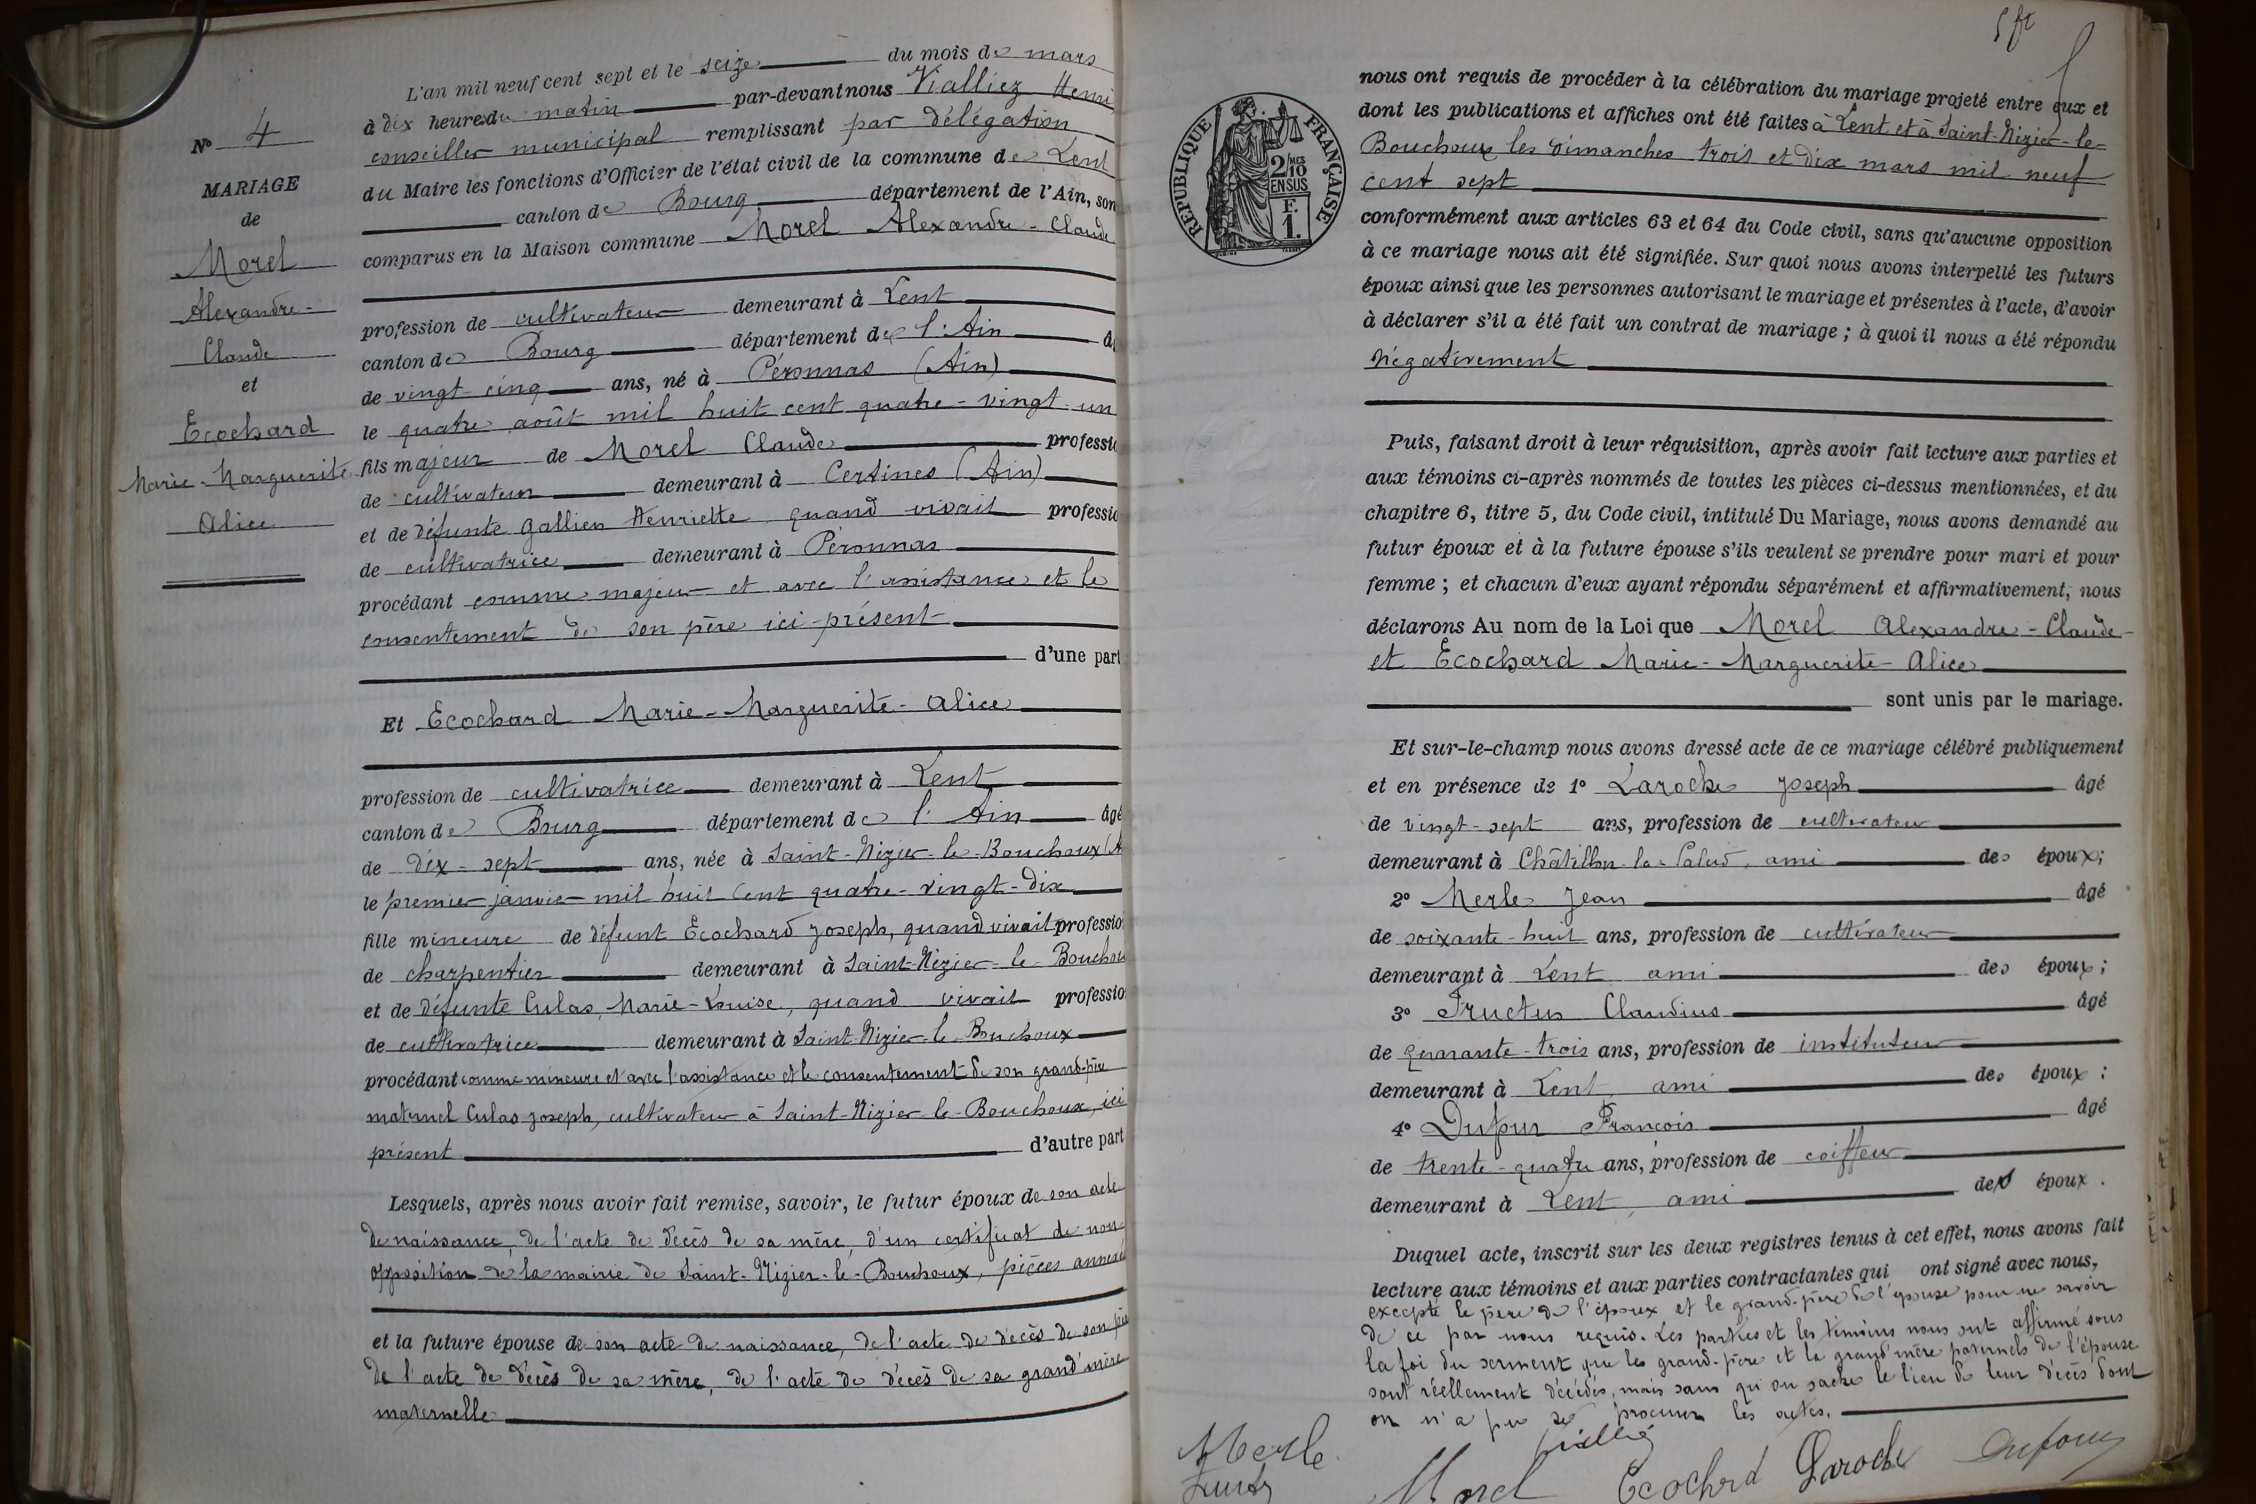 L'an mil neuf cent sept et le seize du mois de mars
à dix heures du matin par-devant nous Vialliez Henri
conseiller municipal remplissant par délégation
du Maire les fonctions d'Officier de l'état civil de la commune de Lent
canton de Bourg département de l'Ain, son
comparus en la Maison commune Morel Alexandre-Claude
profession de cultivateur demeurant à Lent
canton de Bourg département de l'Ain â
de vingt-cinq ans, né à Péronnas (Ain)
le quatre août mil huit cent quatre-vingt-un
fils majeur de Morel Claude professi
de cultivateur demeurant à Certines (Ain)
et de défunte Gallien Henriette quand vivait professio
de cultivatrice demeurant à Péronnas
procédant comme majeur et avec l'assistance et le
consentement de son père ici présent
d'une part
Et Ecochard Marie-Marguerite-Alice
profession de cultivatrice demeurant à Lent
canton de Bourg département de l'Ain âgé
de dix-sept ans, née à Saint-Nizier-le-Bouchoux (A
le premier janvier mil huit cent quatre-vingt-dix
fille mineure de défunt Ecochard Joseph, quand vivait professio
de charpentier demeurant à Saint-Nizier-le-Bouchou
et de défunte Culas, Marie-Louise, quand vivait professio
de cultivatrice demeurant à Saint-Nizier-le-Bouchoux
procédant comme mineure et avec l'assistance et le consentement de son grand-père
maternel Culas Joseph, cultivateur à Saint-Nizier-le-Bouchoux, ici
présent d'autre part
Lesquels, après nous avoir fait remise, savoir, le futur époux de son acte
de naissance, de l'acte de décès de sa mère, d'un certificat de non
opposition de la mairie de Saint-Nizier-le-Bouchoux, pièces annexé
et la future épouse de son acte de naissance, de l'acte de décès de son père
de l'acte de décès de sa mère, de l'acte de décès de sa grand'mère
maternelle
N° 4
MARIAGE
de
Morel
Alexandre-
Claude
et
Ecochard
Marie-Marguerite
Alice
REPUBLIQUE FRANÇAISE
2/10 MES
EN SUS
F.
1.
nous ont requis de procéder à la célébration du mariage projeté entre eux et
dont les publications et affiches ont été faites à Lent et à Saint-Nizier-le-
Bouchoux les dimanches trois et dix mars mil neuf
cent sept
conformément aux articles 63 et 64 du Code civil, sans qu'aucune opposition
à ce mariage nous ait été signifiée. Sur quoi nous avons interpellé les futurs
époux ainsi que les personnes autorisant le mariage et présentes à l'acte, d'avoir
à déclarer s'il a été fait un contrat de mariage ; à quoi il nous a été répondu
négativement
Puis, faisant droit à leur réquisition, après avoir fait lecture aux parties et
aux témoins ci-après nommés de toutes les pièces ci-dessus mentionnées, et du
chapitre 6, titre 5, du Code civil, intitulé Du Mariage, nous avons demandé au
futur époux et à la future épouse s'ils veulent se prendre pour mari et pour
femme ; et chacun d'eux ayant répondu séparément et affirmativement, nous
déclarons Au nom de la Loi que Morel Alexandre-Claude
et Ecochard Marie-Marguerite-Alice
sont unis par le mariage.
Et sur-le-champ nous avons dressé acte de ce mariage célébré publiquement
et en présence de 1° Laroche Joseph âgé
de vingt-sept ans, profession de cultivateur
demeurant à Châtillon-la-Palud, ami des époux ;
2° Merle Jean âgé
de soixante-huit ans, profession de cultivateur
demeurant à Lent ami des époux ;
3° Fructus Claudius âgé
de quarante-trois ans, profession de instituteur
demeurant à Lent, ami des époux ;
4° Dufour François âgé
de trente-quatre ans, profession de coiffeur
demeurant à Lent, ami des époux.
Duquel acte, inscrit sur les deux registres tenus à cet effet, nous avons fait
lecture aux témoins et aux parties contractantes qui ont signé avec nous,
excepté le père de l'époux et le grand-père de l'épouse pour ne savoir
de ce par nous requis. Les parties et les témoins nous ont affirmé sous
la foi du serment que les grand-père et la grand'mère paternels de l'épouse
sont réellement décédés, mais sans qu'on sache le lieu de leur décès dont
on n'a pu se procurer les actes.
Merle Viallié
Morel Ecochard Laroche Dufour